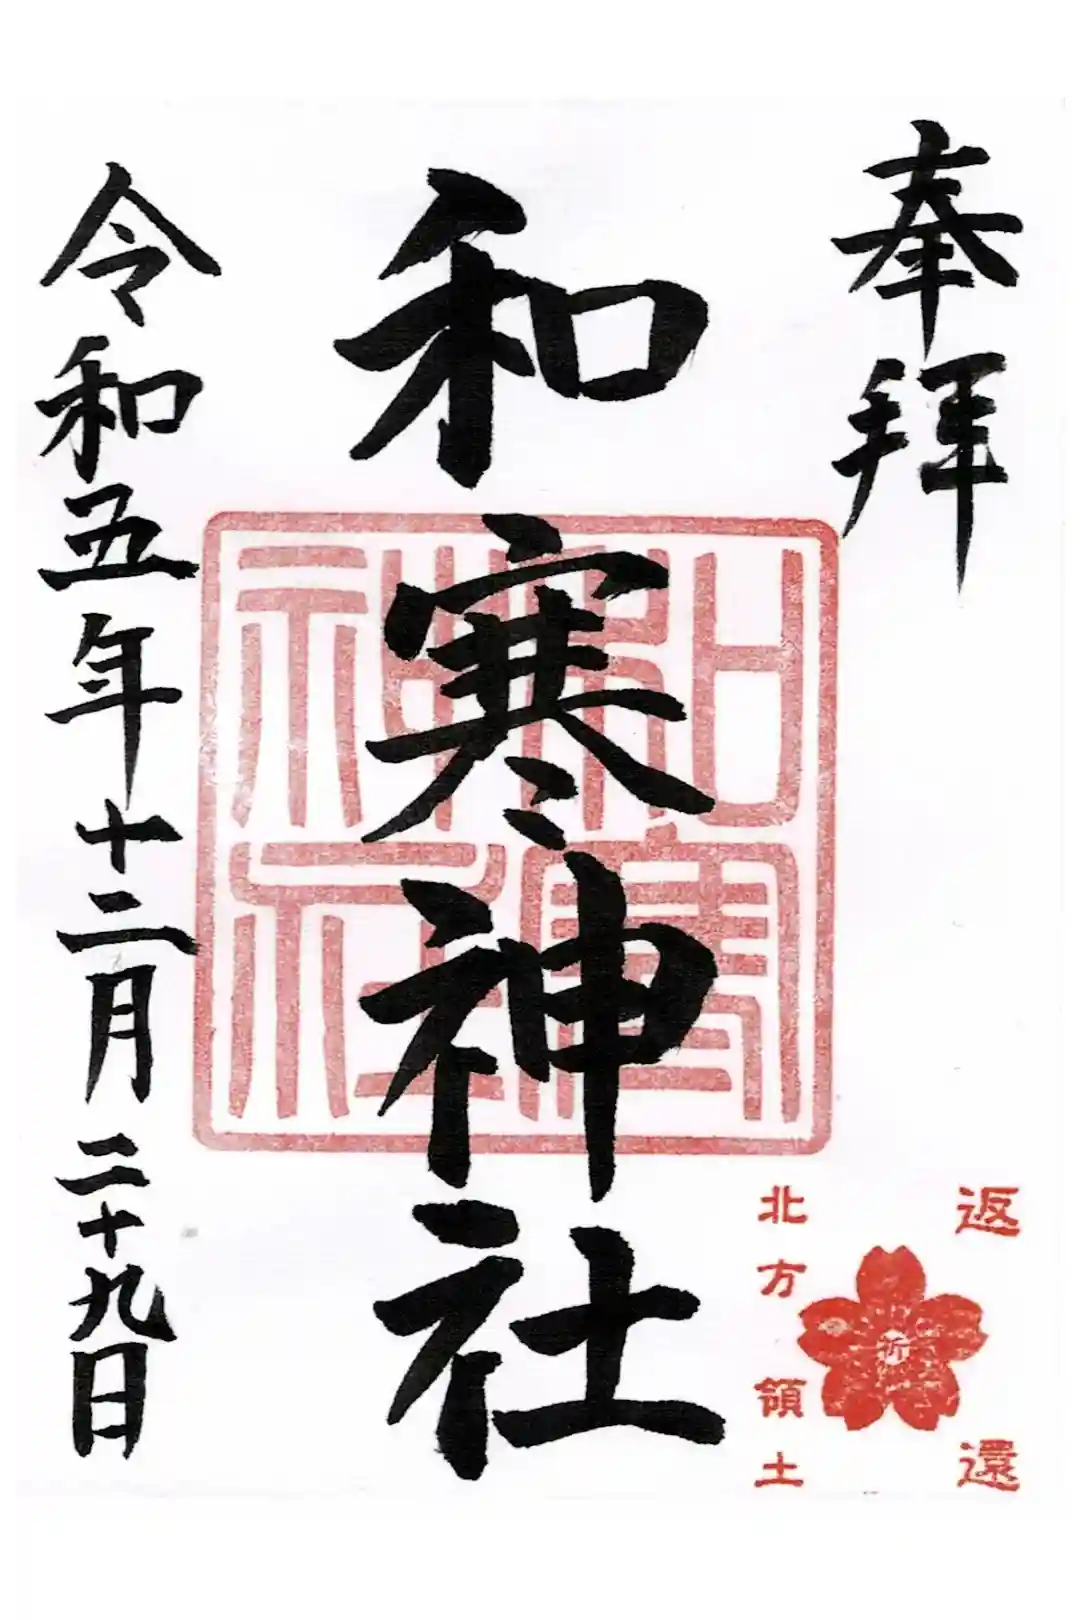 奉拝
和寒神社
和寒神社
令和五年十二月二十九日
返還
祈
北方領土